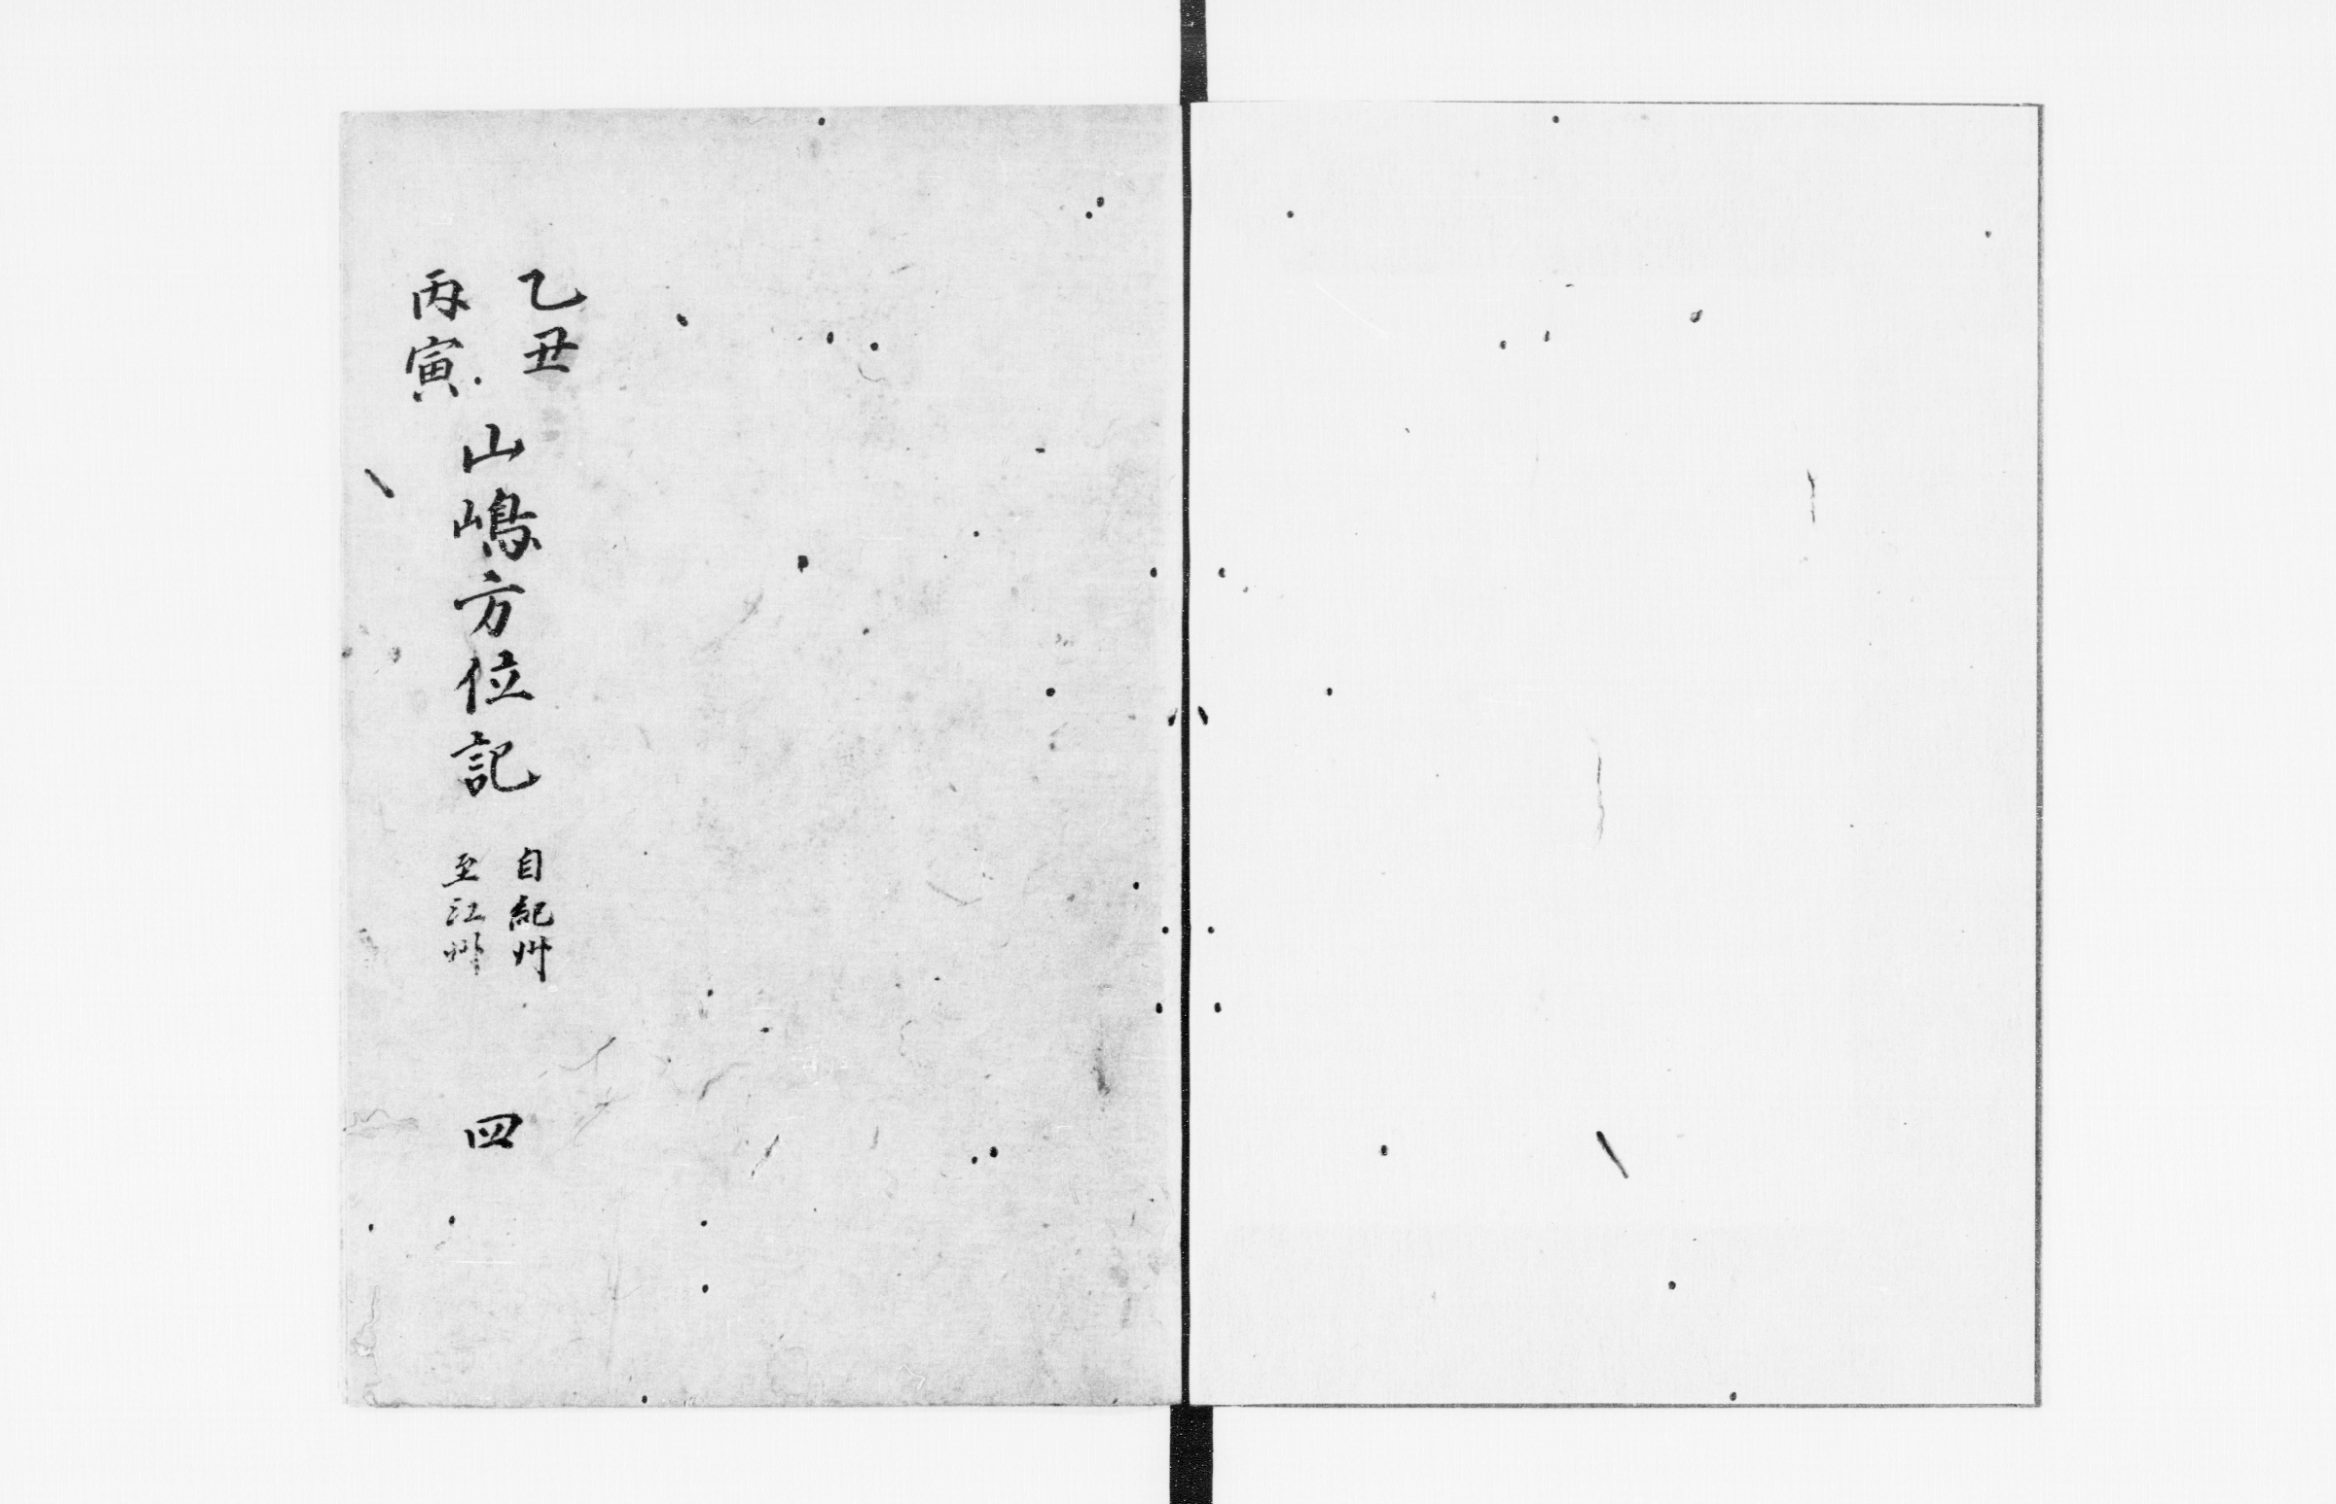 乙丑
丙寅
山嶋方位記
自紀州
至江州
四